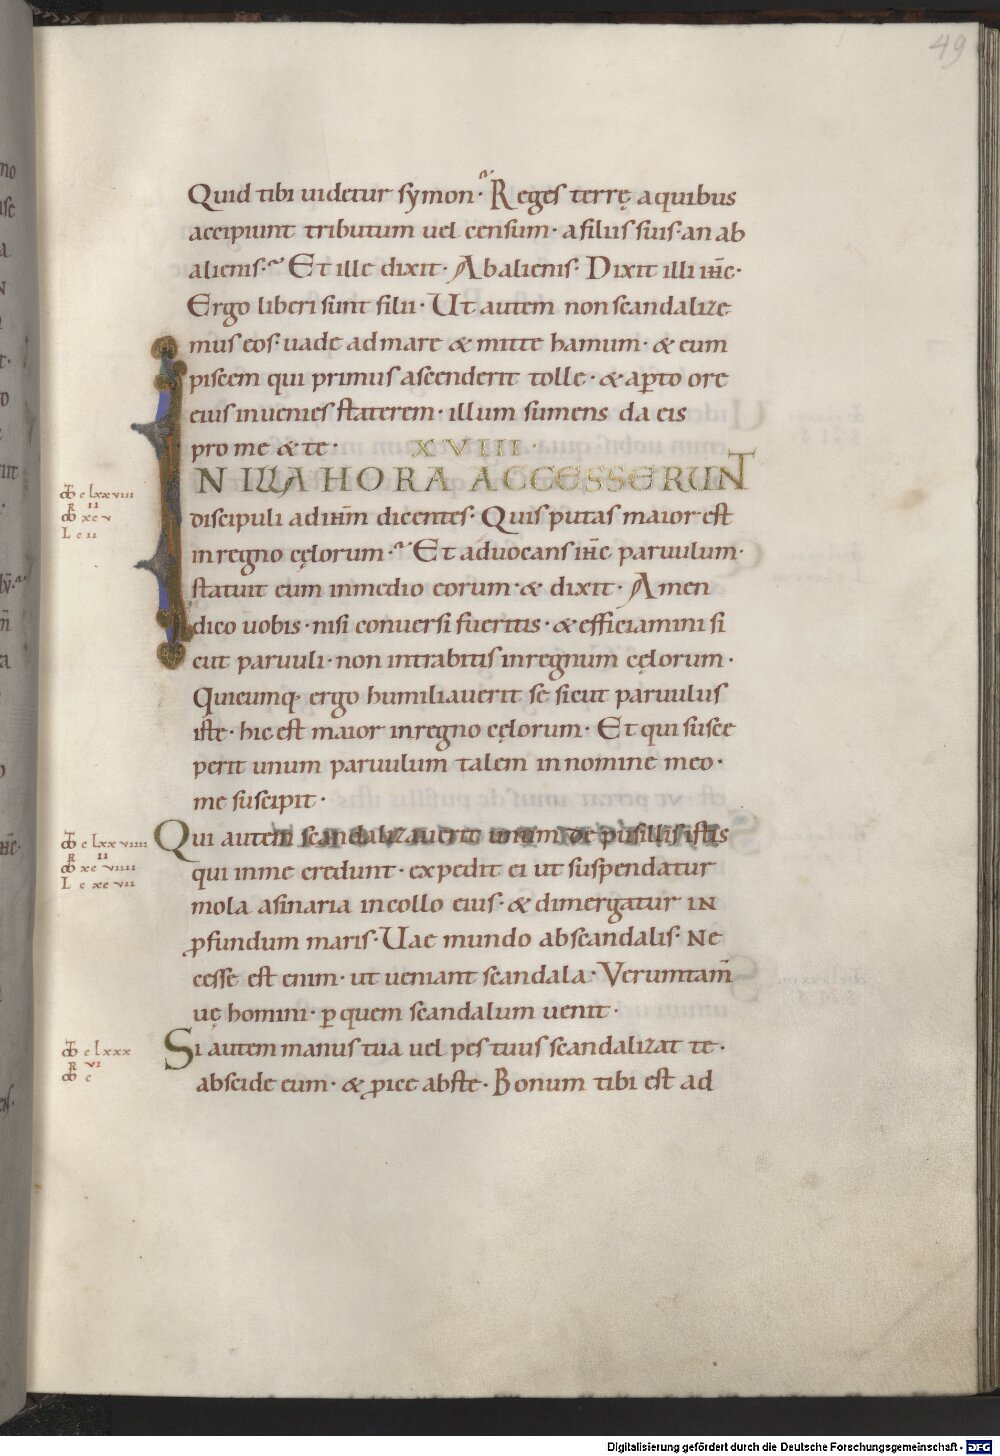 49
Quid tibi uidetur symon· Reges terrę aquibus
accipiunt tributum uel censum· afiliis suis· an ab
alienis· Et ille dixit· Abalienis· Dixit illi ih̅c·
Ergo liberi sunt filii· Ut autem non scandalize
mus eos· uade ad mare & mitte hamum· & eum
piscem qui primus ascenderit tolle· & ap̱to ore
eius inuenies staterem· illum sumens da eis
pro me & te· XVIII·
IN ILLA HORA ACCESSERUNT
discipuli ad ih̅m dicentes· Quis putas maior est
in regno cęlorum· Et aduocans ih̅c paruulum·
statuit eum inmedio eorum· & dixit· Amen
dico uobis· nisi conuersi fueritis· & efficiamini si
cut paruuli· non intrabitis inregnum cęlorum·
Quicumq· ergo humiliauerit se sicut paruulus
iste· hic est maior inregno cęlorum· Et qui susce
perit unum paruulum talem in nomine meo·
me suscipit·
Qui autem scandalizauerit unum de pusillis istis
qui inme credunt· expedit ei ut suspendatur
mola asinaria incollo eius· & dimergatur IN
ꝓfundum maris· Uae mundo abscandalis· Ne
cesse est enim· ut ueniant scandala· Verumtam̅
uę homini· ꝑ quem scandalum uenit·
Si autem manus tua uel pes tuus scandalizat te·
abscide eum· & ꝓice abste· Bonum tibi est ad
c lxxviii
R II
xc v
L c II
c lxx viiii
R II
xc viiii
L c xc vii
c lxxx
R VI
c
Digitalisierung gefördert durch die Deutsche Forschungsgemeinschaft - DFG